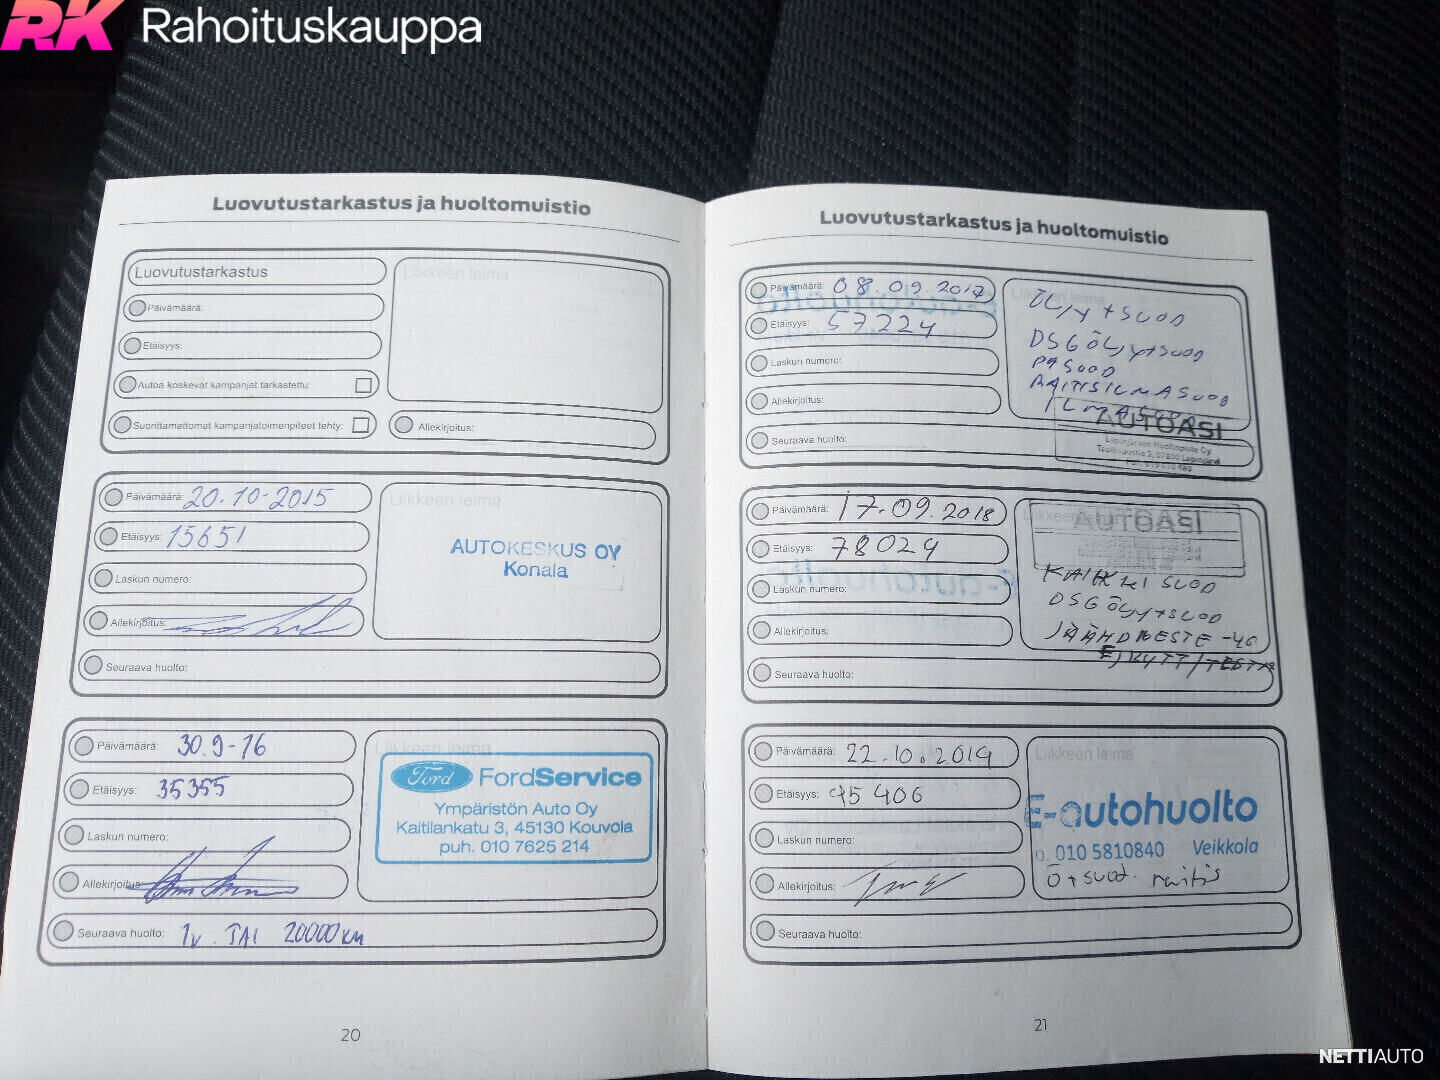 RK Rahoituskauppa
Luovutustarkastus ja huoltomuistio
Luovutustarkastus
Liikkeen leima
Päivämäärä:
Etäisyys:
Autoa koskevat kampanjat tarkastettu:
Suorittamattomat kampanjatoimenpiteet tehty:
Allekirjoitus:
Päivämäärä: 20.10-2015
Liikkeen leima
Etäisyys: 15651
AUTOKESKUS OY
Konala
Laskun numero:
Allekirjoitus:
Seuraava huolto:
Päivämäärä: 30.9-16
Liikkeen leima
Ford FordService
Etäisyys: 35355
Ympäristön Auto Oy
Kaitilankatu 3, 45130 Kouvola
puh. 010 7625 214
Laskun numero:
Allekirjoitus:
Seuraava huolto: 1v. TAI 20000 KM
20
Luovutustarkastus ja huoltomuistio
Päivämäärä: 08.09.2017
Liikkeen leima
ÖLJY+SUOD
Etäisyys: 57224
DSG ÖLJY+SUOD
Laskun numero:
PASUOD
RAITISILMASUOD
Allekirjoitus:
ILMASUOD
AUTOASI
Lapinjärven Huoltopiste Oy
Teollisuustie 2, 07800 Lapinjärvi
Seuraava huolto:
Päivämäärä: 17.09.2018
Liikkeen leima
AUTOASI
Etäisyys: 78024
KAIKKI SUOD
Laskun numero:
DSG ÖLJY+SUOD
Allekirjoitus:
JÄÄHDNESTE -40
Seuraava huolto:
Päivämäärä: 22.10.2019
Liikkeen leima
Etäisyys: 95406
E-autohuolto
Laskun numero:
p. 010 5810840 Veikkola
Ö+suod. raitis
Allekirjoitus:
Seuraava huolto:
21
NETTIAUTO